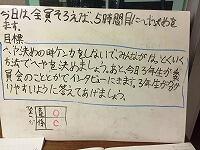 今日は、全員そろえば、5時間目にへや決めを
ます。
目標
へや決めの時ケンカをしないで、みんながなっとくいく
方法でへやを決めましょう。あと、今日3年生が委
員会のことかでインタビューにきます。3年生が分か
りやすいように答えてあげましょう。